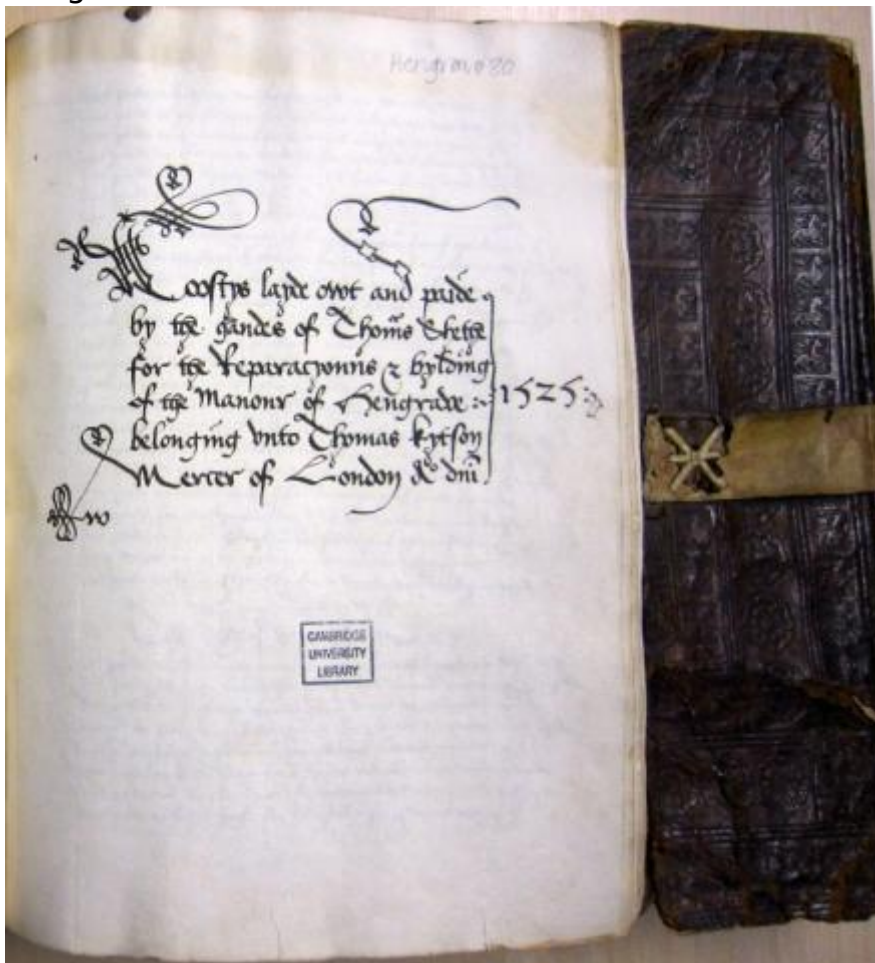 Hengrave 80
Coostys layde owt and paide
by the handes of Thoms
for the Reparacyonns & bylding
of the Manour of Hengrave :~ 1525 :~
belonging vnto Thomas Kytson
Mercer of London Aº dni
CAMBRIDGE
UNIVERSITY
LIBRARY